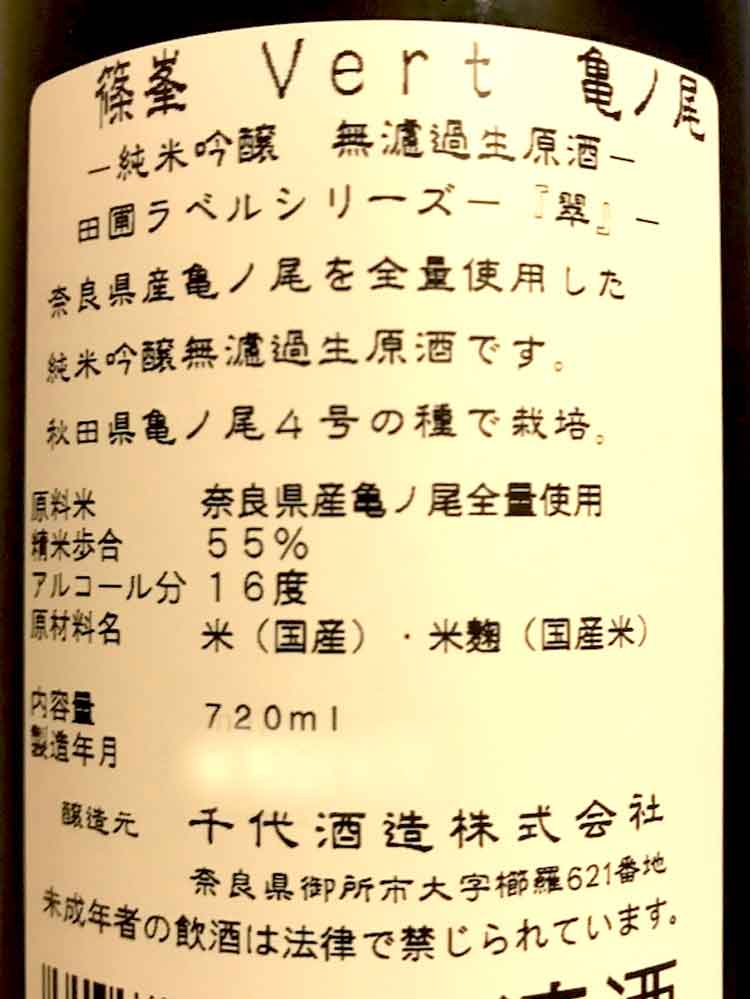 篠峯 Vert 亀ノ尾
－純米吟醸 無濾過生原酒－
田圃ラベルシリーズ－『翠』－
奈良県産亀ノ尾を全量使用した
純米吟醸無濾過生原酒です。
秋田県亀ノ尾４号の種で栽培。
原料米 奈良県産亀ノ尾全量使用
精米歩合 ５５％
アルコール分 １６度
原材料名 米（国産）・米麹（国産米）
内容量 ７２０ｍｌ
製造年月
醸造元 千代酒造株式会社
奈良県御所市大字櫛羅621番地
未成年者の飲酒は法律で禁じられています。
清酒